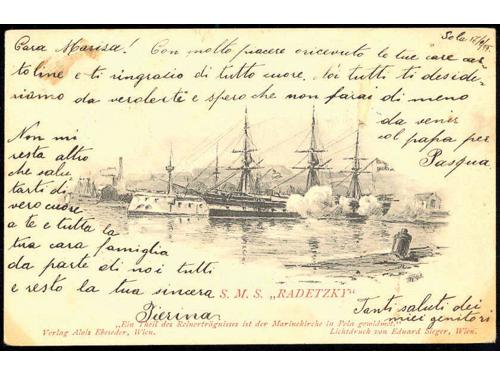 Pola 17/4/98.
Cara Marisa! Con molto piacere o ricevuto le tue care car-
toline e ti ringrazio di tutto cuore. Noi tutti ti deside-
riamo da vederte e spero che non farai di meno
da venir
col papa per
Pasqua
Non mi
resta altro
che salu
tarti di
vero cuore
a te e tutta la
tua cara famiglia
da parte di noi tutti
e resto la tua sincera
Pierina
Tanti saluti dei
miei genitori
S. M. S. „RADETZKY"
„Ein Theil des Reinerträgnisses ist der Marinekirche in Pola gewidmet."
Verlag Alois Ebeseder, Wien. Lichtdruck von Eduard Sieger, Wien.